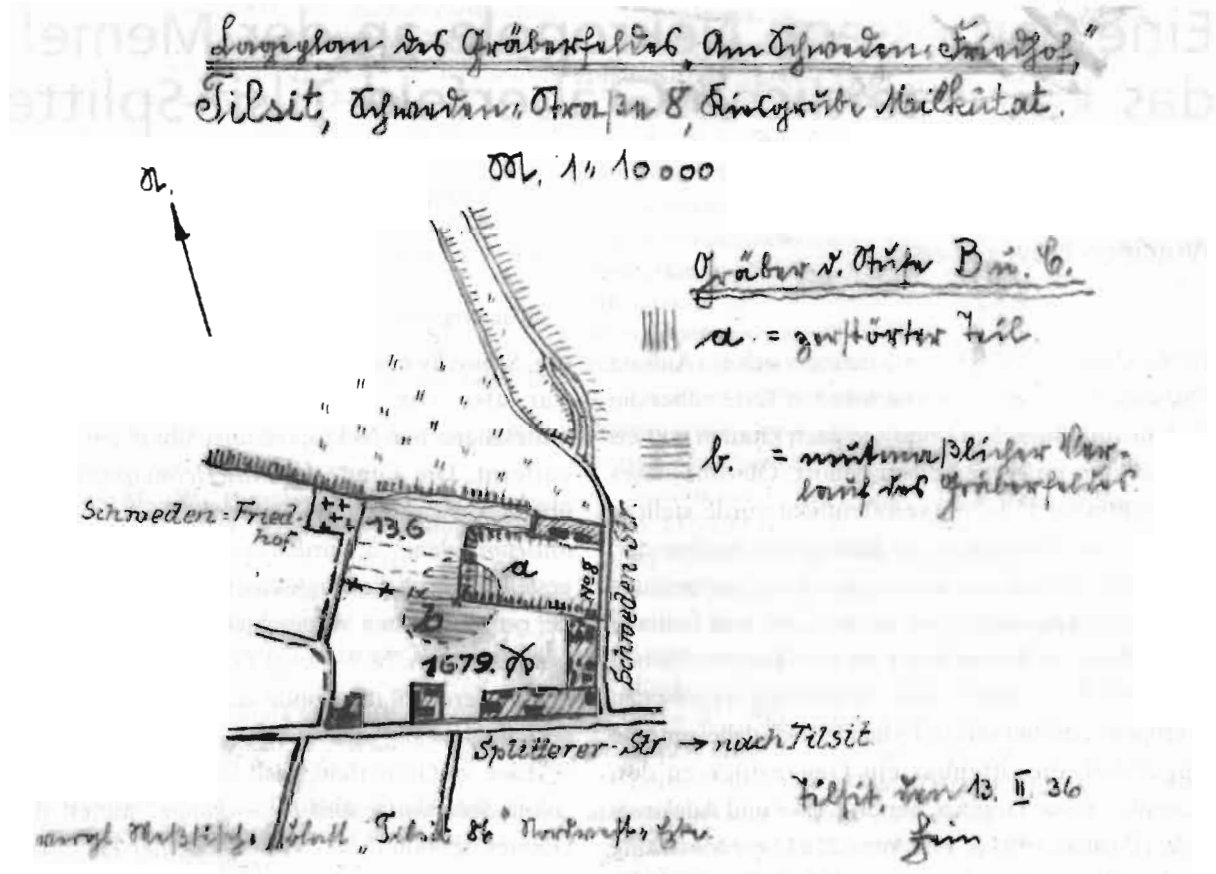 Lageplan des Gräberfeldes „Am Schweden-Friedhof,"
Tilsit, Schweden-Straße 8, Kiesgrube Milkutat.
M. 1 : 10000
N.
Gräber d. Stufe B u. C.
a = zerstörter Teil.
b. = mutmaßlicher Ver-
lauf des Gräberfeldes.
Schweden-Fried-
hof
13.6
a
No 8
Schweden Str.
b
1679.
Splitterer-Str → nach Tilsit
Tilsit den 13. II. 36
vergl. Messtischblatt „Tilsit 86" Nordwest-Ecke.